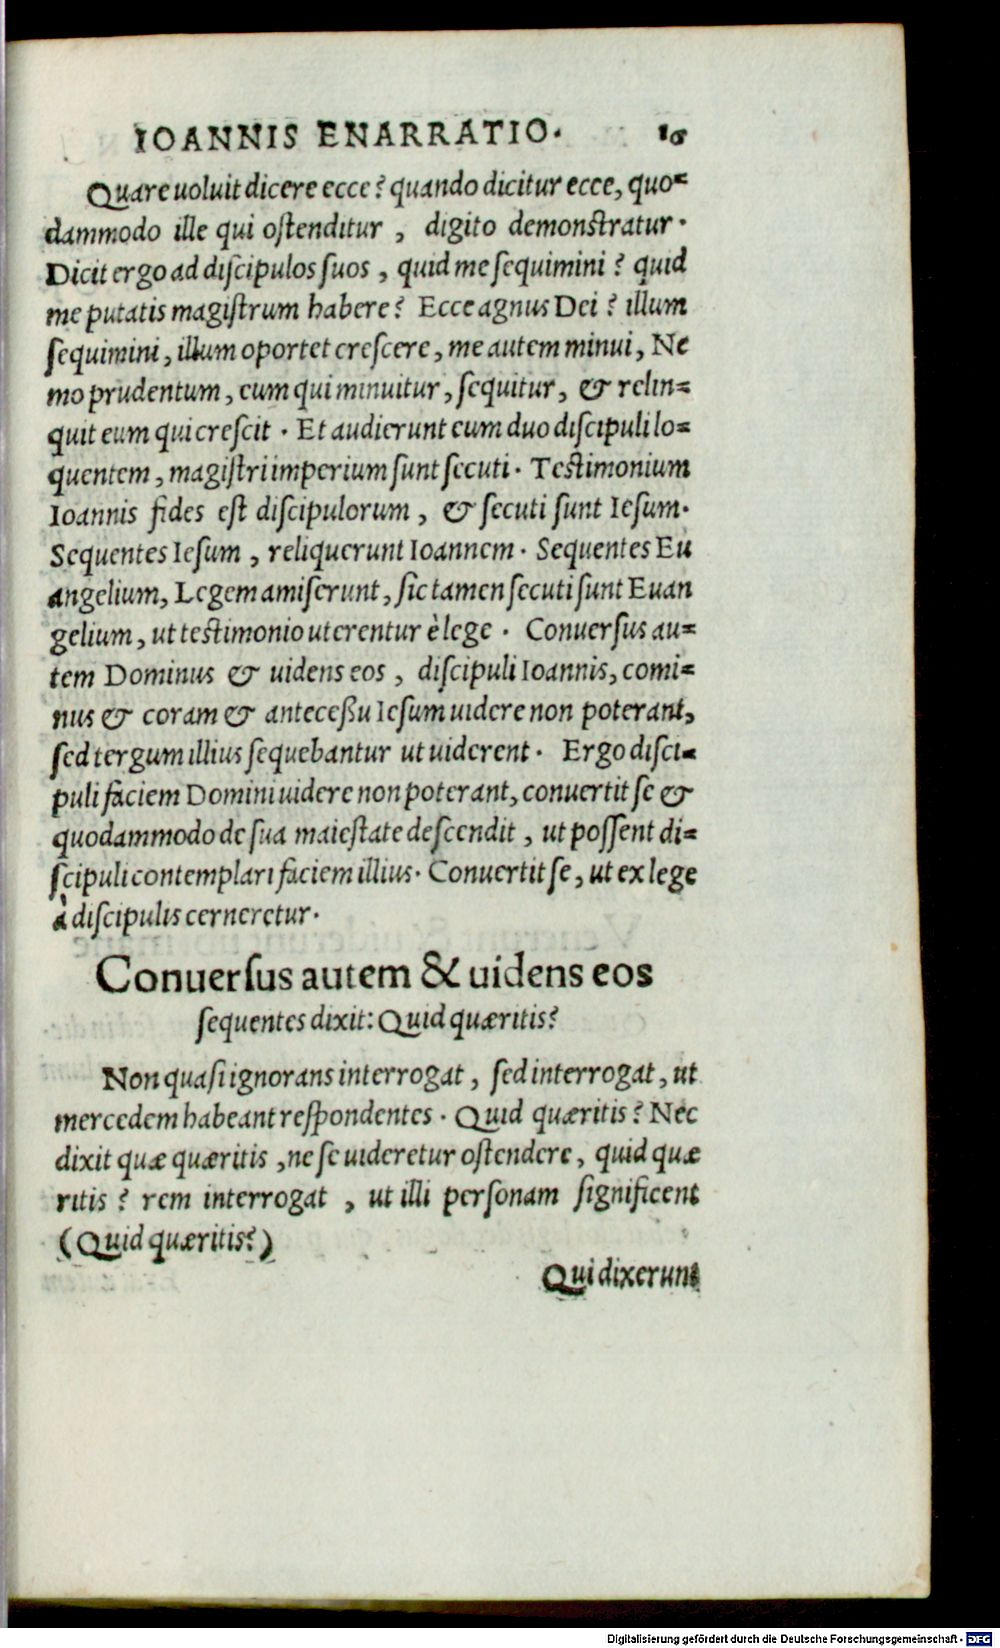 IOANNIS ENARRATIO. 16
Quare uoluit dicere ecce? quando dicitur ecce, quo=
dammodo ille qui oſtenditur, digito demonſtratur.
Dicit ergo ad diſcipulos ſuos, quid me ſequimini? quid
me putatis magiſtrum habere? Ecce agnus Dei? illum
ſequimini, illum oportet creſcere, me autem minui, Ne
mo prudentum, eum qui minuitur, ſequitur, & relin=
quit eum qui creſcit. Et audierunt eum duo diſcipuli lo=
quentem, magiſtri imperium ſunt ſecuti. Teſtimonium
Ioannis fides eſt diſcipulorum, & ſecuti ſunt Ieſum.
Sequentes Ieſum, reliquerunt Ioannem. Sequentes Eu
angelium, Legem amiſerunt, ſic tamen ſecuti ſunt Euan
gelium, ut teſtimonio uterentur è lege. Conuerſus au=
tem Dominus & uidens eos, diſcipuli Ioannis, comi=
nus & coram & anteceßu Ieſum uidere non poterant,
ſed tergum illius ſequebantur ut uiderent. Ergo diſci=
puli faciem Domini uidere non poterant, conuertit ſe &
quodammodo de ſua maieſtate deſcendit, ut poſſent di=
ſcipuli contemplari faciem illius. Conuertit ſe, ut ex lege
à diſcipulis cerneretur.
Conuerſus autem & uidens eos
ſequentes dixit: Quid quæritis?
Non quaſi ignorans interrogat, ſed interrogat, ut
mercedem habeant reſpondentes. Quid quæritis? Nec
dixit quæ quæritis, ne ſe uideretur oſtendere, quid quæ
ritis? rem interrogat, ut illi perſonam ſignificent
(Quid quæritis?)
Qui dixerunt
Digitalisierung gefördert durch die Deutsche Forschungsgemeinschaft - DFG